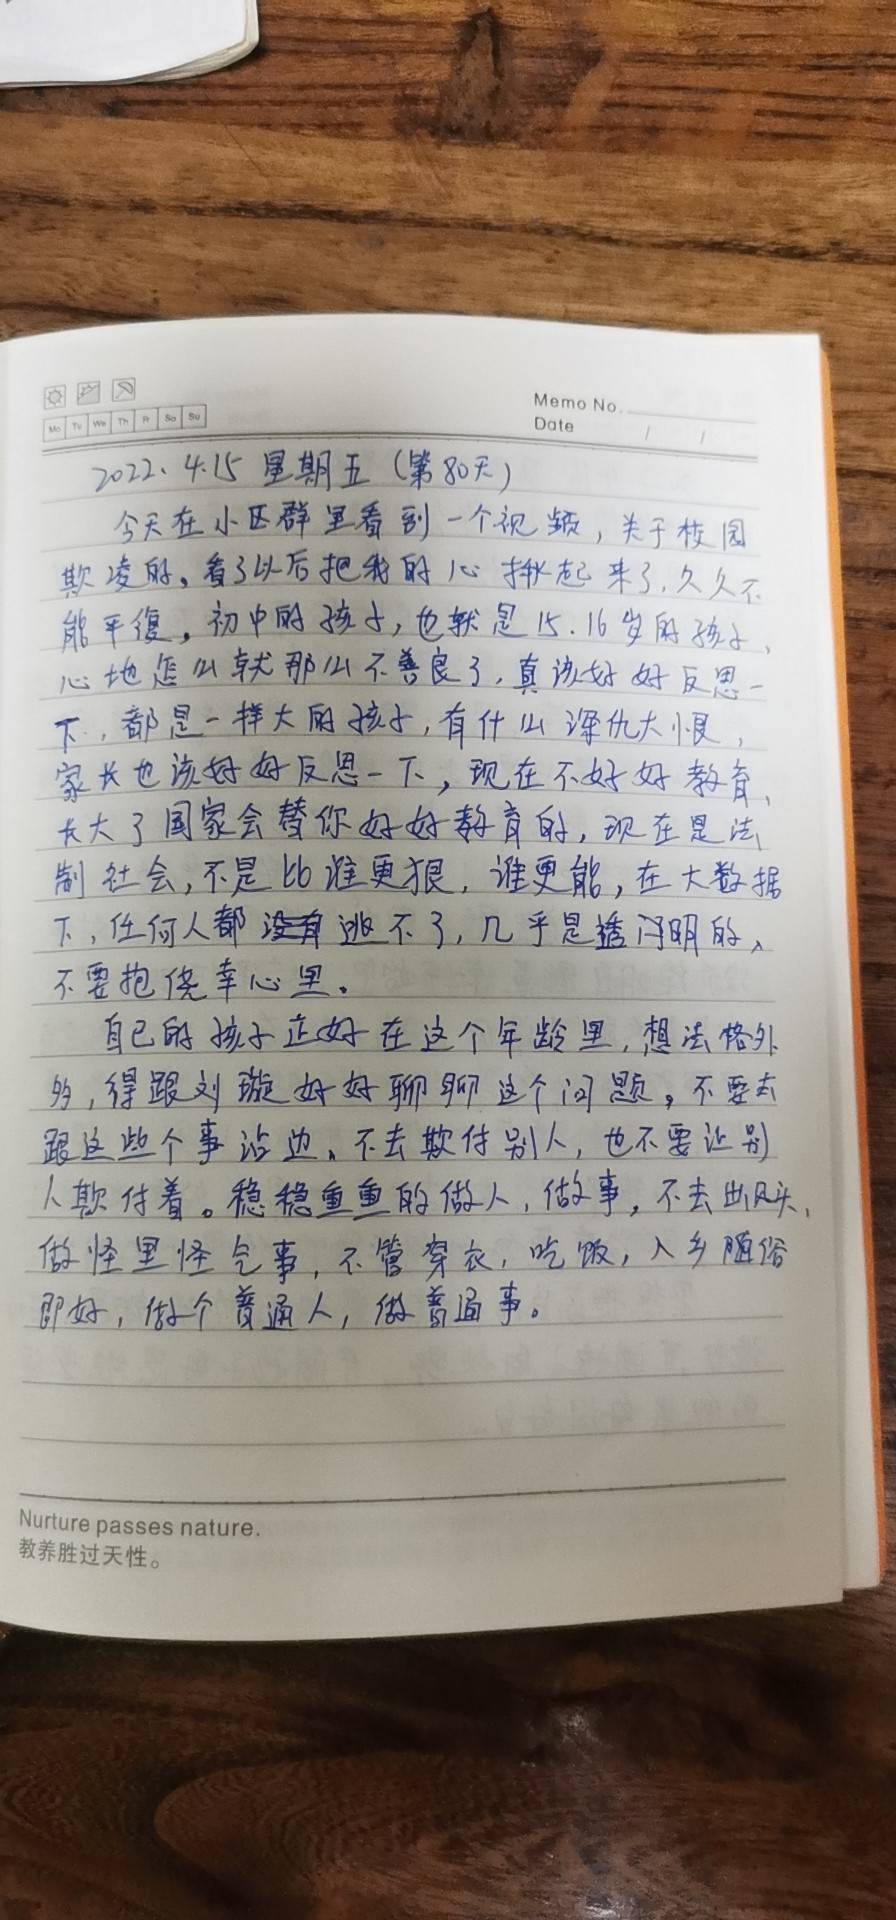 Mo Tu We Th Fr Sa Su
Memo No.
Date / /
2022.4.15 星期五(第80天)
今天在小区群里看到一个视频,关于校园
欺凌的。看了以后把我的心揪起来了,久久不
能平復。初中的孩子,也就是15.16岁的孩子,
心地怎么就那么不善良了,真该好好反思一
下,都是一样大的孩子,有什么深仇大恨,
家长也该好好反思一下,现在不好好教育,
长大了国家会替你好好教育的,现在是法
制社会,不是比谁更狠,谁更能,在大数据
下,任何人都逃不了,几乎是透明的、
不要抱侥幸心里。
自己的孩子正好在这个年龄里,想法格外
多,得跟刘璇好好聊聊这个问题。不要去
跟这些个事沾边、不去欺付别人,也不要让别
人欺付着。稳稳重重的做人,做事,不去出风头,
做怪里怪气事,不管穿衣,吃饭,入乡随俗
即好,做个普通人,做普通事。
Nurture passes nature.
教养胜过天性。